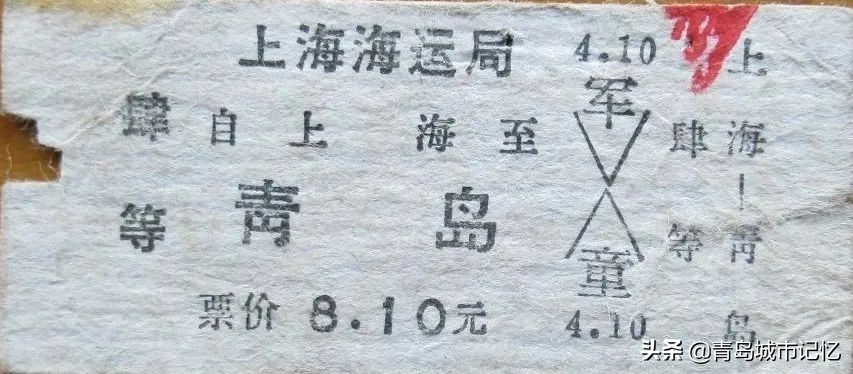 上海海运局
肆等
自上海至
青岛
票价 8.10元
4.10
军
童
4.10
肆等
上海—青岛
头条 @青岛城市记忆